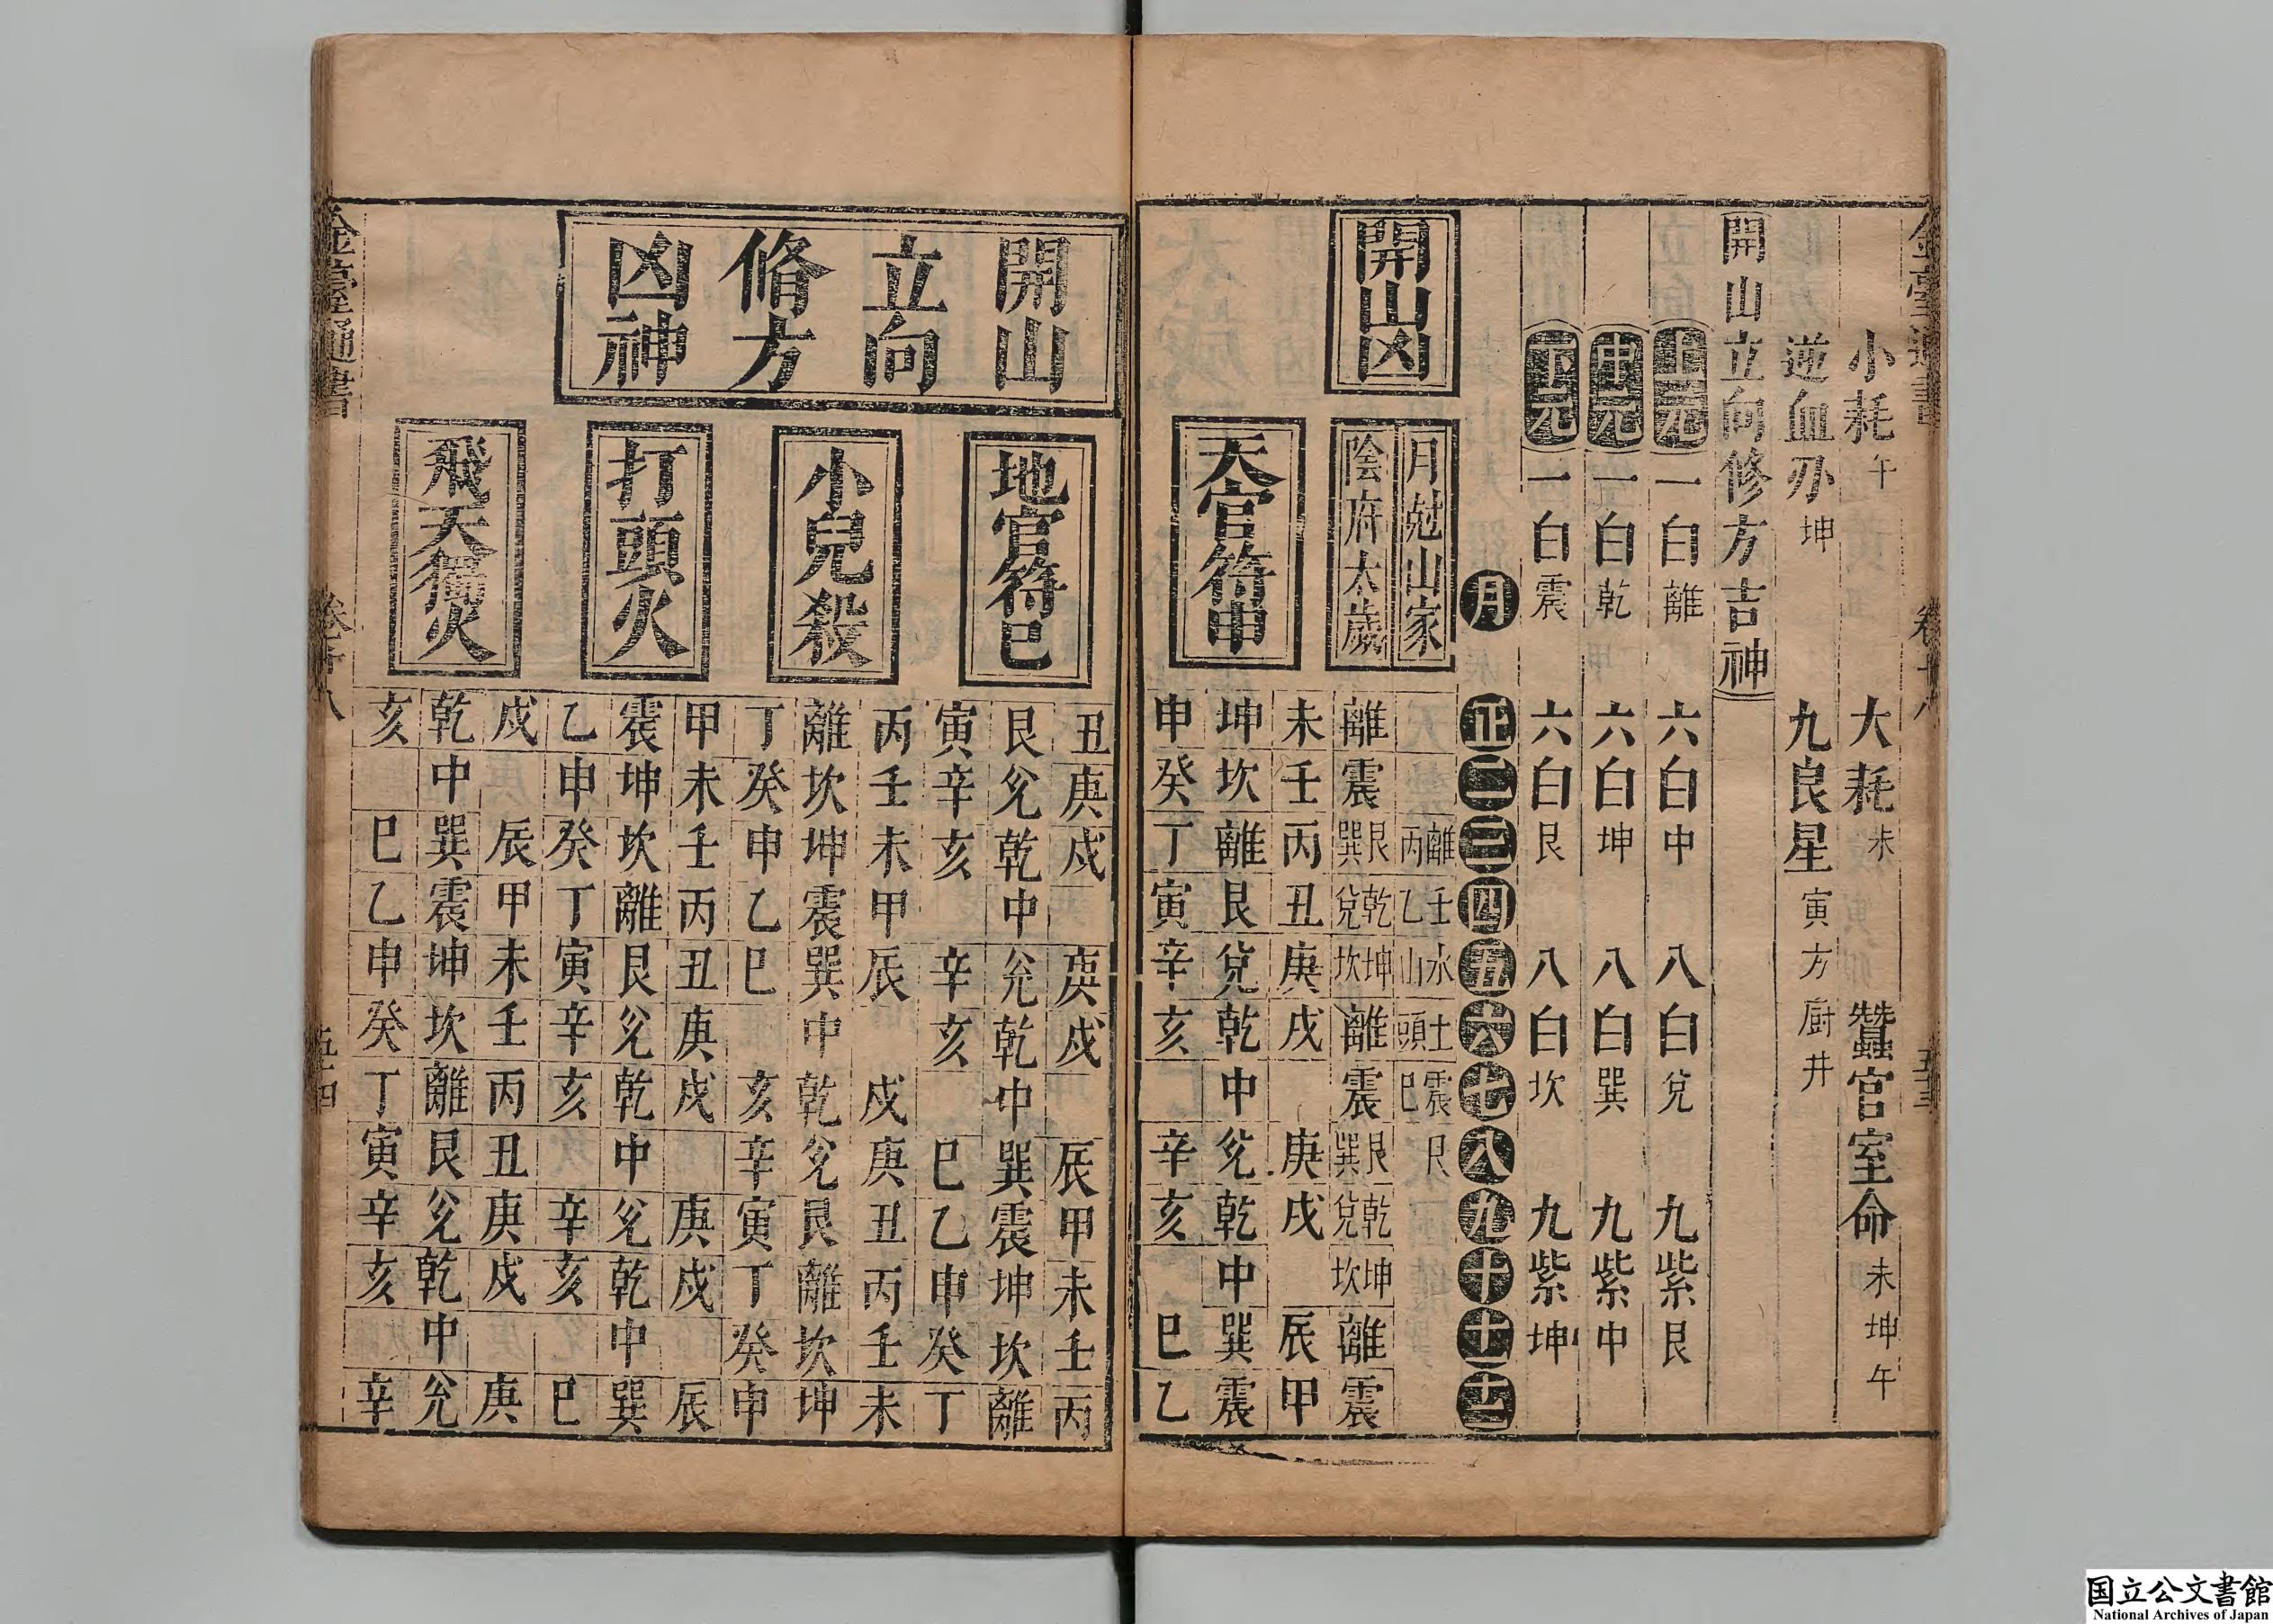 小耗午 大耗未 蠶官室命未坤午
逆血刃坤 九良星寅方厨井
開山立向修方吉神
上元 一白離 六白中 八白兌 九紫艮
中元 一白乾 六白坤 八白巽 九紫中
下元 一白震 六白艮 八白坎 九紫坤
月 正 二 三 四 五 六 七 八 九 十 十一 十二
開山凶
月尅山家 離丙 壬乙 水山 土頭 震巳 艮
陰府太歲 離 震 艮巽 乾兌 坤坎 離 震 艮巽 乾兌 坤坎 離 震
天官符申
未 壬 丙 丑 庚 戌 庚 戌 辰 甲
坤 坎 離 艮 兌 乾 中 兌 乾 中 巽 震
申 癸 丁 寅 辛 亥 辛 亥 巳 乙
開山立向脩方凶神
地官符巳
丑 庚 戌 庚 戌 辰 甲 未 壬 丙
艮 兌 乾 中 兌 乾 中 巽 震 坤 坎 離
寅 辛 亥 辛 亥 巳 乙 申 癸 丁
小兒殺
丙 壬 未 甲 辰 戌 庚 丑 丙 壬 未
離 坎 坤 震 巽 中 乾 兌 艮 離 坎 坤
丁 癸 申 乙 巳 亥 辛 寅 丁 癸 申
打頭火
甲 未 壬 丙 丑 庚 戌 庚 戌 辰
震 坤 坎 離 艮 兌 乾 中 兌 乾 中 巽
乙 申 癸 丁 寅 辛 亥 辛 亥 巳
飛天獨火
戌 辰 甲 未 壬 丙 丑 庚 戌 庚
乾 中 巽 震 坤 坎 離 艮 兌 乾 中 兌
亥 巳 乙 申 癸 丁 寅 辛 亥 辛
国立公文書館
National Archives of Japan